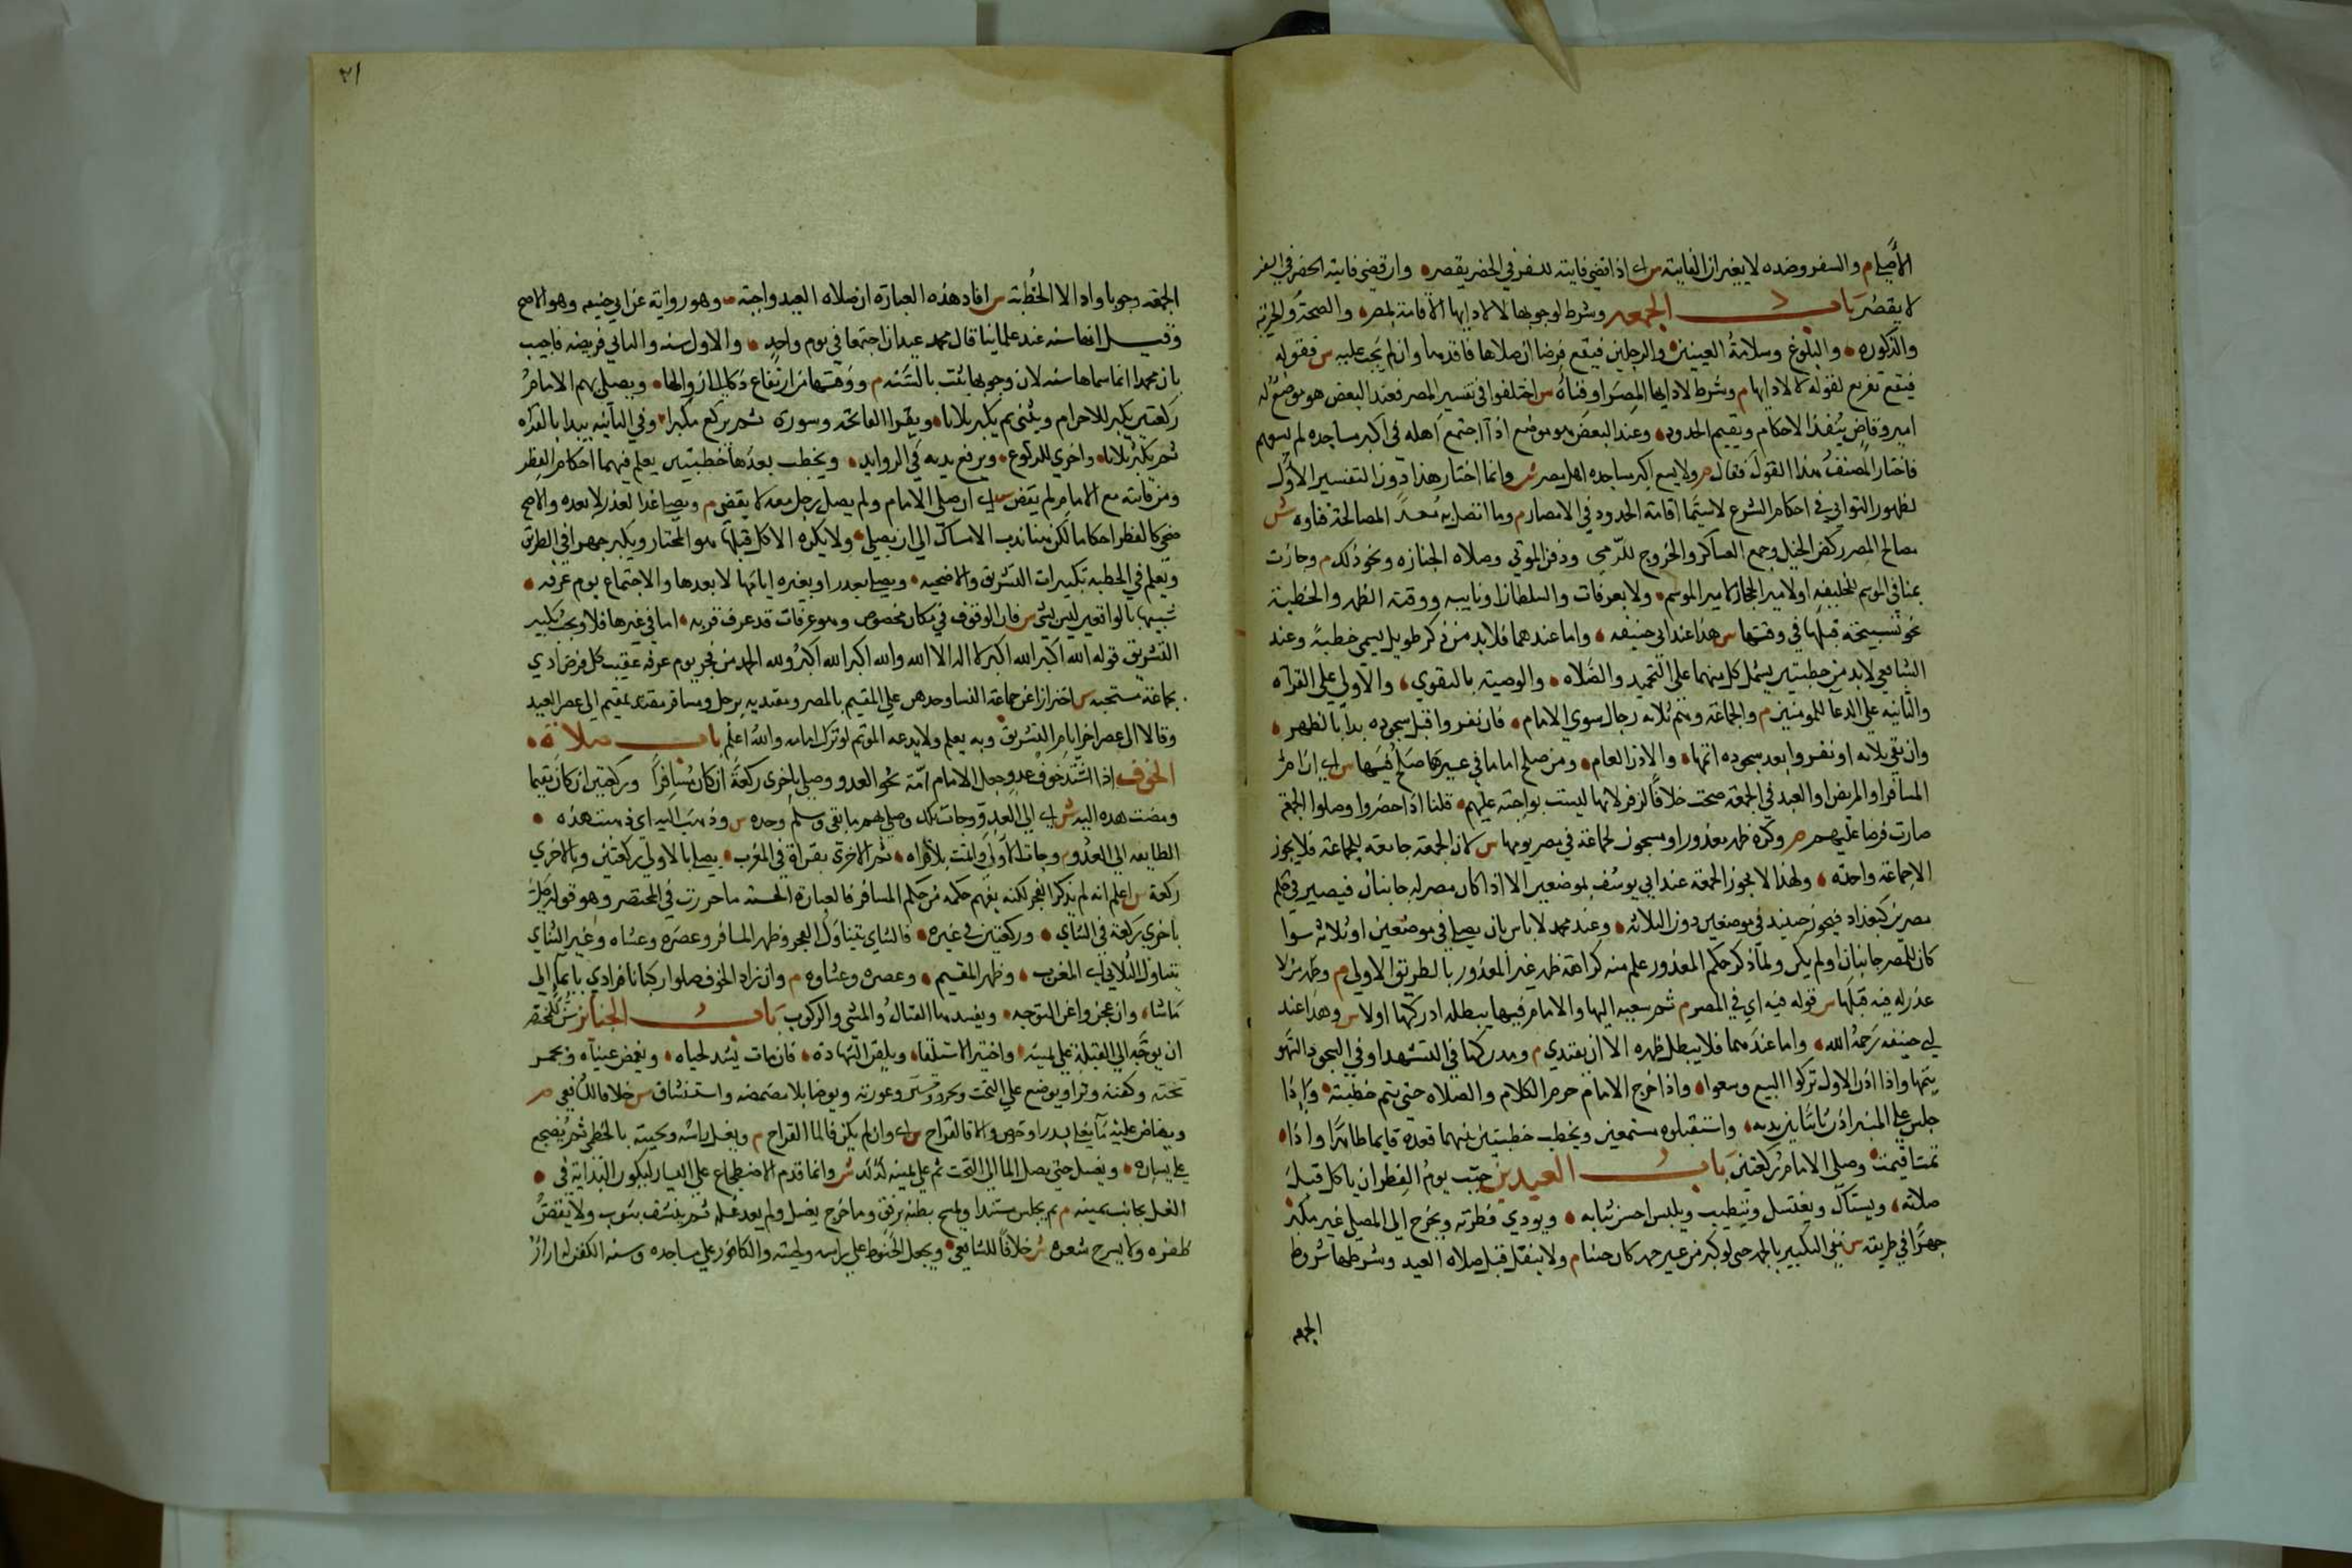 الأصلي م والسفر وضده لا يغيران الفايتة س اي اذا قضى فايتة السفر في الحضر يقصر وان قضى فايتة الحضر في السفر
لا يقصر باب الجمعه وشرط لوجوبها لا لادايها الاقامة بمصر والصحة والحرية
والذكوره والبلوغ وسلامة العينين والرجلين فيقع فرضا ان صلاها فاقدها وان لم تجب عليه س فقوله
فيقع تفريع لقوله لا لادايها م وشرط لادايها المصر او فناه س اختلفوا في تفسير المصر فعند البعض هو موضع له
امير وقاض ينفذ الاحكام ويقيم الحدود وعند البعض هو موضع اذا اجتمع اهله في اكبر مساجده لم يسعهم
فاختار المصنف هذا القول فقال م ولا يسع اكبر مساجده اهل مصر ش وانما اختار هذا دون التفسير الاول
لظهور التواني في احكام الشرع لا سيما اقامة الحدود في الامصار م وما اتصل به معد المصالحة فناوه ش
مصالح المصر ركض الخيل وجمع العساكر والخروج للرمي ودفن الموتى وصلاه الجنازه ونحو ذلك م وجازت
بمنا في الموسم للخليفه او لامير الحجاز لا امير الموسم ولا بعرفات والسلطان او نايبه ووقت الظهر والخطبة
نحو تسبيحة قبلها في وقتها س هذا عند ابي حنيفه واما عندهما فلا بد من ذكر طويل يسمى خطبة وعند
الشافعي لا بد من خطبتين يشمل كل منهما على التحميد والصلاه والوصية بالتقوي والاولي على القراه
والثانيه على الدعا للمومنين م والجماعة وهم ثلاثه رجال سوي الامام فان نفروا قبل سجوده بدا بالظهر
وان بقي ثلاثه او نفروا بعد سجوده اتمها والاذن العام ومن صلح اماما في غيرها صلح فيها س اي ان ام
المسافر او المريض او العبد في الجمعة صحت خلافا لزفر لانها ليست بواجبة عليهم قلنا اذا حضروا وصلوا الجمعة
صارت فرضا عليهم م وكره ظهر معذور او مسجون لجماعة في مصر يومها س لان الجمعة جامعة للجماعة فلا يجوز
الا جماعة واحدة ولهذا لا يجوز الجمعة عند ابي يوسف بموضعين الا اذا كان مصر له جانبان فيصير في حكم
مصرين كبغداد فيجوز حينيذ في موضعين دون الثلاثه وعند محمد لا باس بان يصلي في موضعين او ثلاثة سوا
كان للمصر جانبان او لم يكن ولما ذكر حكم المعذور علم منه كراهة ظهر غير المعذور بالطريق الاولي م وظهر من لا
عذر له فيه قبلها س قوله فيه اي في المصر م ثم سعيه اليها والامام فيها يبطله ادركها اولا س وهذا عند
ابي حنيفه رحمه الله واما عندهما فلا يبطل ظهره الا ان يقتدي م ومدركها في التشهد او في السجود السهو
يتمها واذا اذن الاول تركوا البيع وسعوا واذا خرج الامام حرم الكلام والصلاه حتى يتم خطبته واذا
جلس على المنبر اذن ثانيا بين يديه واستقبلوه مستمعين ويخطب خطبتين بينهما قعدة قايما طاهرا واذا
تمت اقيمت وصلى الامام ركعتين باب العيدين حبب يوم الفطر ان ياكل قبل
صلاته ويستاك ويغتسل ويتطيب ويلبس احسن ثيابه ويودي فطرته ويخرج الى المصلى غير مكبر
جهرا في طريقه س نفى التكبير بالجهر حتى لو كبر من غير جهر كان حسنا م ولا يتنفل قبل صلاه العيد وشرطها شروط
الجمعه
٣١
الجمعة وجوبا وادا الا الخطبة س افاد هذه العبارة ان صلاه العيد واجبة وهو رواية عن ابي حنيفه وهو الاصح
وقيل انها سنة عند علماينا قال محمد عيدان اجتمعا في يوم واحد والاول سنه والثاني فريضه فاجيب
بان محمدا انما سماها سنه لان وجوبها ثبت بالسنه م ووقتها من ارتفاع ذكا الى زوالها ويصلي بهم الامام
ركعتين يكبر للاحرام ويثني ثم يكبر ثلاثا ويقرا الفاتحة وسورة ثم يركع مكبرا وفي الثانيه يبدا بالقراه
ثم يكبر ثلاثا واخري للركوع ويرفع يديه في الزوايد ويخطب بعدها خطبتين يعلم فيهما احكام الفطر
ومن فاتته مع الامام لم يقض س اي ان صلى الامام ولم يصل رجل معه لا يقضي م ويصلي غدا لعذر لا بعده والاضحى
ضحى كالفطر احكاما لكن هنا ندب الامساك الى ان يصلي ولا يكره الاكل قبلها هو المختار ويكبر جهرا في الطريق
ويعلم في الخطبه تكبيرات التشريق والاضحيه ويصلي بعذر او بغيره ايامها لا بعدها والاجتماع يوم عرفه
تشبيها بالواقفين ليس بشي س فان الوقوف في مكان مخصوص وهو عرفات قد عرف قربه اما في غيرها فلا ويجب تكبير
التشريق قوله الله اكبر الله اكبر لا اله الا الله والله اكبر الله اكبر ولله الحمد من فجر يوم عرفه عقيب كل فرض ادي
بجماعة مستحبه س احترازا عن جماعة النسا وحدهن على المقيم بالمصر ومقتديه برجل ومسافر مقتد بمقيم الى عصر العيد
وقالا الى عصر اخر ايام التشريق وبه يعلم ولا يدعه الموتم لو ترك امامه والله اعلم باب صلاة
الخوف اذا اشتد خوف عدو جعل الامام امة نحو العدو وصلى باخرى ركعة ان كان مسافرا وركعتين ان كان مقيما
ومضت هذه اليه ش اي الى العدو وجات تلك وصلى بهم ما بقي وسلم وحده س وذهب اليه اي ذهبت هذه
الطايفه الى العدو م وجات الاولى واتمت بلا قراه ثم الاخرى بقراة في المغرب يصلي بالاولى ركعتين وبالاخري
ركعة س اعلم انه لم يذكر الفجر لكنه يفهم حكمه من حكم المسافر فالعبارة الحسنه ما حررت في المختصر وهو قوله صلى
باخري ركعة في الثنائي وركعتين في غيره فالثنائي يتناول الفجر وظهر المسافر وعصره وعشاه وغير الثنائي
يتناول الثلاثي اي المغرب وظهر المقيم وعصره وعشاوه م وان زاد الخوف صلوا ركبانا فرادي بايما الى
ما شا وان عجزوا عن التوجه ويفسدها القتال والمشي والركوب باب الجنائز سن للمحتضر
ان يوجه الى القبلة على يمينه واختير الاستلقا ويلقن الشهادة فان مات يشد لحياه ويغمض عيناه ويجمر
تخته وكفنه وترا ويوضع على التخت ويجرد وتستر عورته ويوضا بلا مضمضه واستنشاق س خلافا للشافعي م
ويفاض عليه ما يغلي بسدر او حرض والا فالقراح س اي وان لم يكن فالما القراح م ويغسل راسه ولحيته بالخطمي ثم يضجع
على يساره ويغسل حتى يصل الما الى التخت ثم على يمينه كذلك ش وانما قدم الاضطجاع على اليسار ليكون البداية في
الغسل بجانب يمينه م ثم يجلس مستندا ويمسح بطنه برفق وما خرج يغسل ولم يعد غسله ثم ينشف بثوب ولا يقص
ظفره ولا يسرح شعره ش خلافا للشافعي ويجعل الحنوط على راسه ولحيته والكافور على مساجده وسنه الكفن له ازار